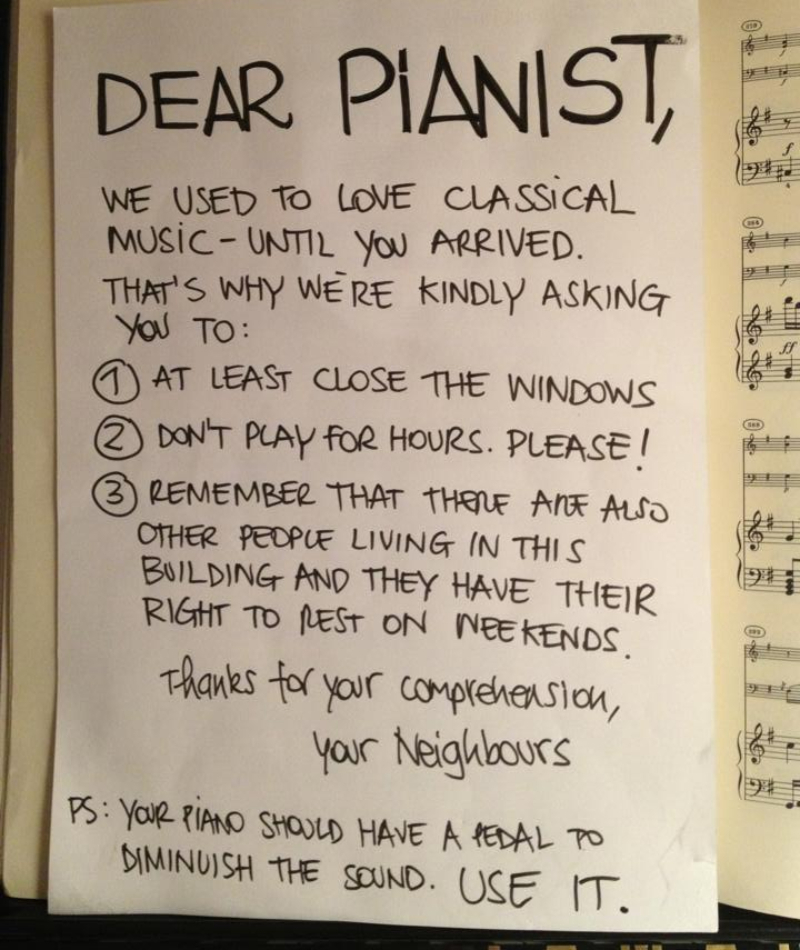 DEAR PIANIST,
WE USED TO LOVE CLASSICAL
MUSIC - UNTIL YOU ARRIVED.
THAT'S WHY WE'RE KINDLY ASKING
YOU TO:
1 AT LEAST CLOSE THE WINDOWS
2 DON'T PLAY FOR HOURS. PLEASE!
3 REMEMBER THAT THERE ARE ALSO
OTHER PEOPLE LIVING IN THIS
BUILDING AND THEY HAVE THEIR
RIGHT TO REST ON WEEKENDS.
Thanks for your comprehension,
your Neighbours
PS: YOUR PIANO SHOULD HAVE A PEDAL TO
DIMINUISH THE SOUND. USE IT.
f
ff